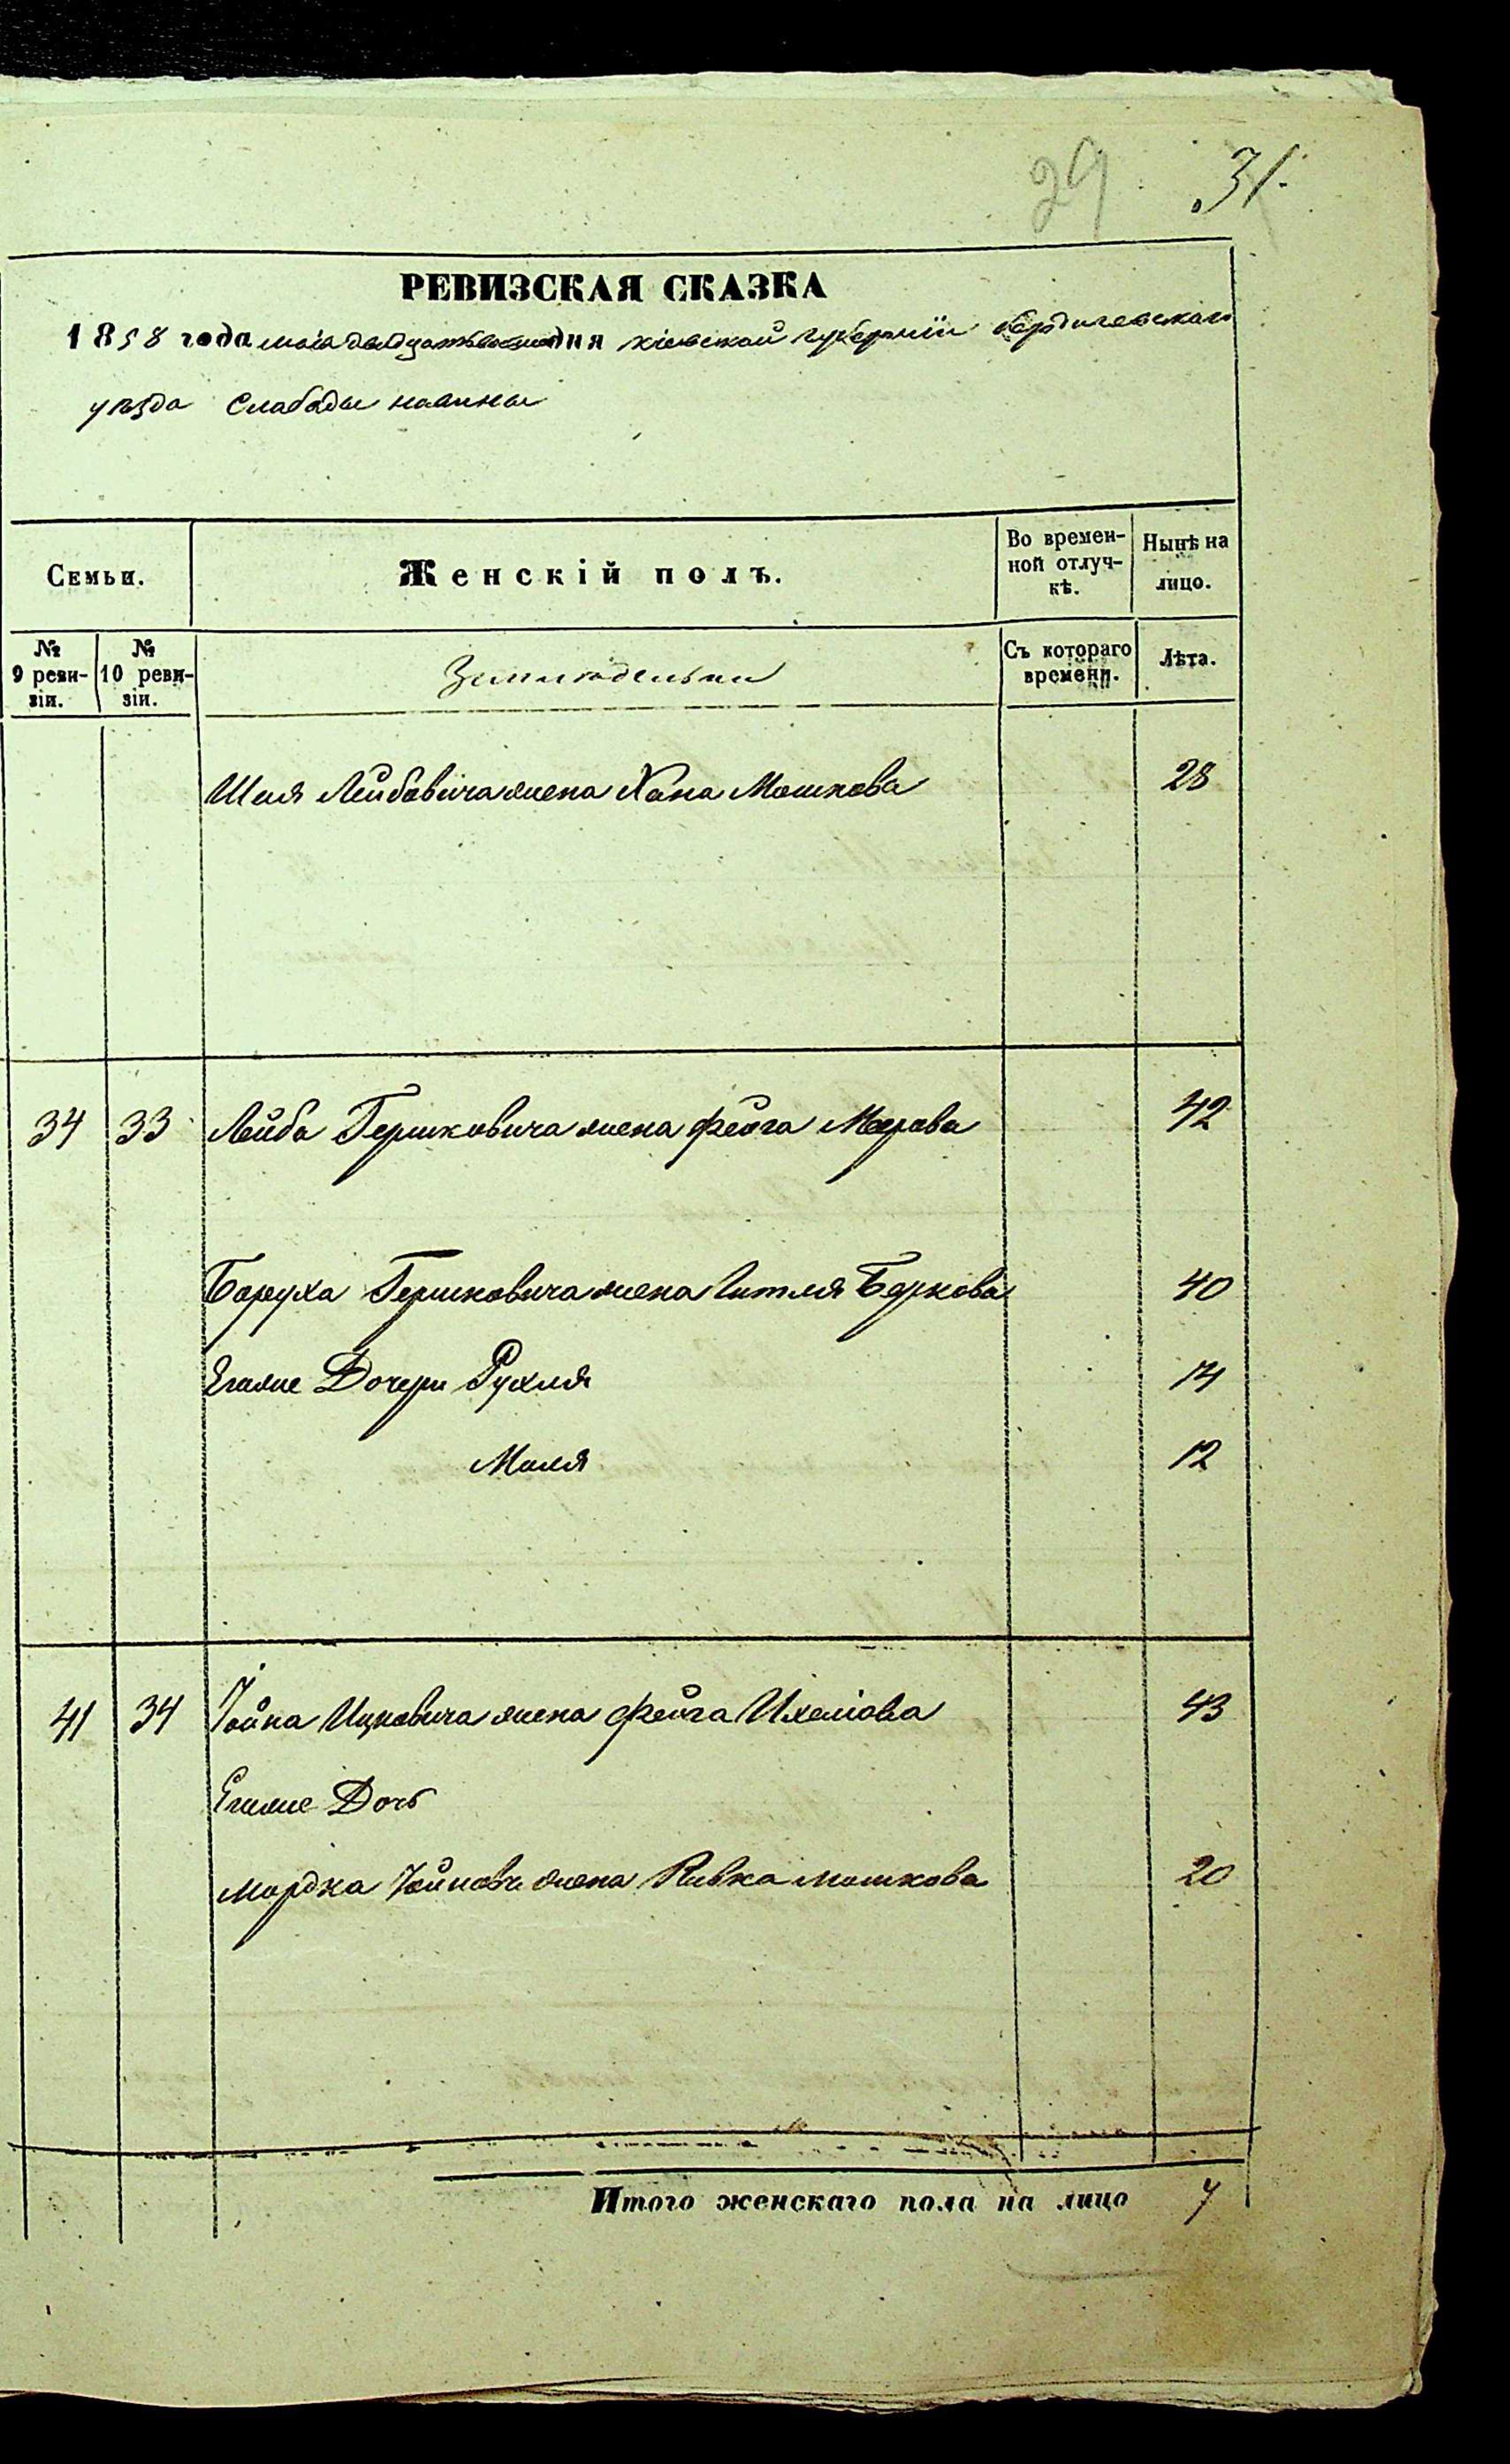 29 31.
РЕВИЗСКАЯ СКАЗКА
1858 года мая двадцать дня кіевской губерніи бердичевскаго
уѣзда Слабоды
Семьи.
Женскій полъ.
Во времен-
ной отлуч-
кѣ.
Нынѣ на
лицо.
№
9 реви-
зіи.
№
10 реви-
зіи.
Съ котораго
времени.
Лѣта.
Шая Лейбовича жена Хана Мошкова 28
34 33 Лейба Гершковича жена Фейга Меерова 42
Боруха Гершковича жена Гитля Беркова 40
Егоже Дочери Рухля 14
Маля 12
41 34 Іойна Ицковича жена Фейга Ихеліова 43
Егоже Дочь
Мордка Іойнови жена Ривка мошкова 20
Итого женскаго пола на лицо 7